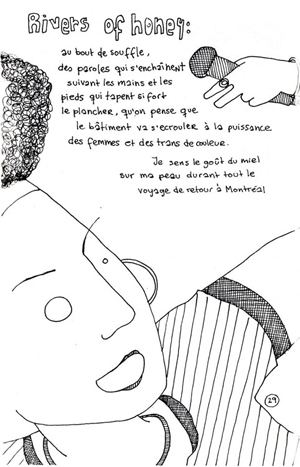 Rivers of honey:
au bout de souffle,
des paroles qui s'enchaînent
suivant les mains et les
pieds qui tapent si fort
le plancher, qu'on pense que
le bâtiment va s'ecrouler à la puissance
des femmes et des trans de couleur.
Je sens le goût du miel
sur ma peau durant tout le
voyage de retour à Montréal
29